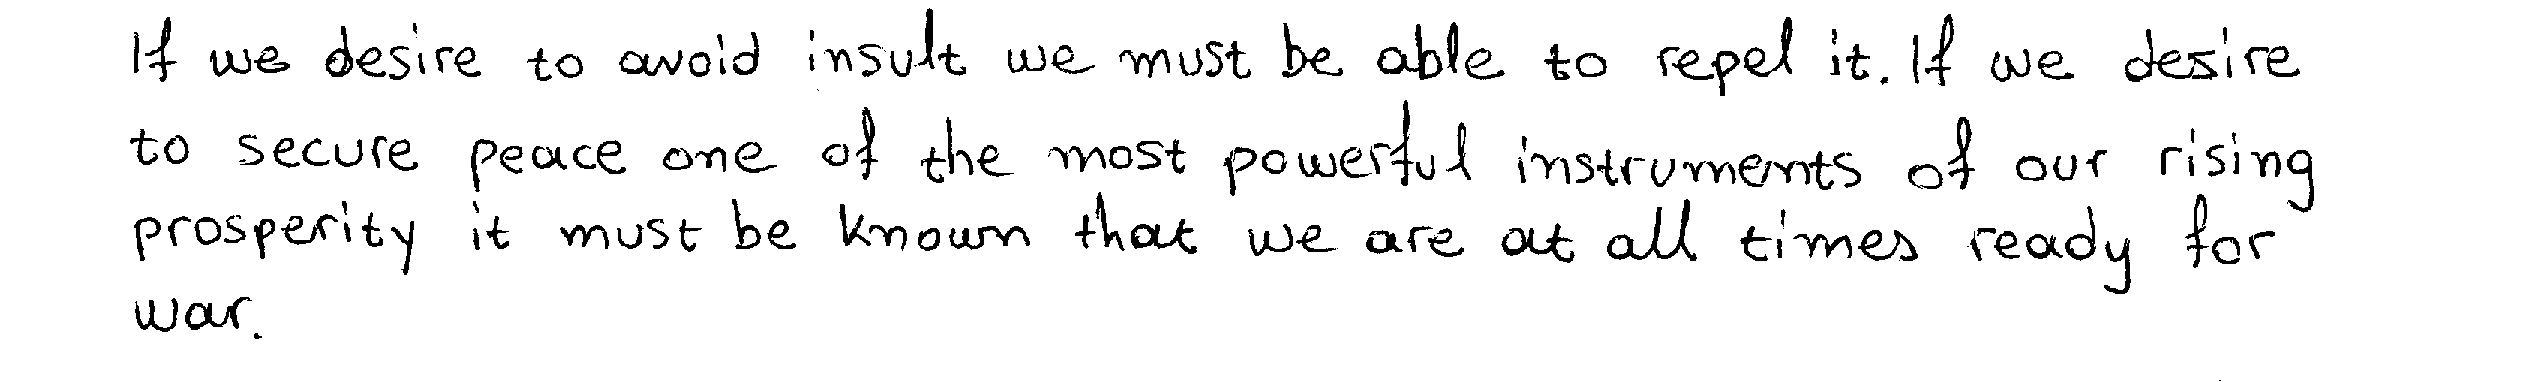 If we desire to avoid insult we must be able to repel it. If we desire
to secure peace one of the most powerful instruments of our rising
prosperity it must be known that we are at all times ready for
war.